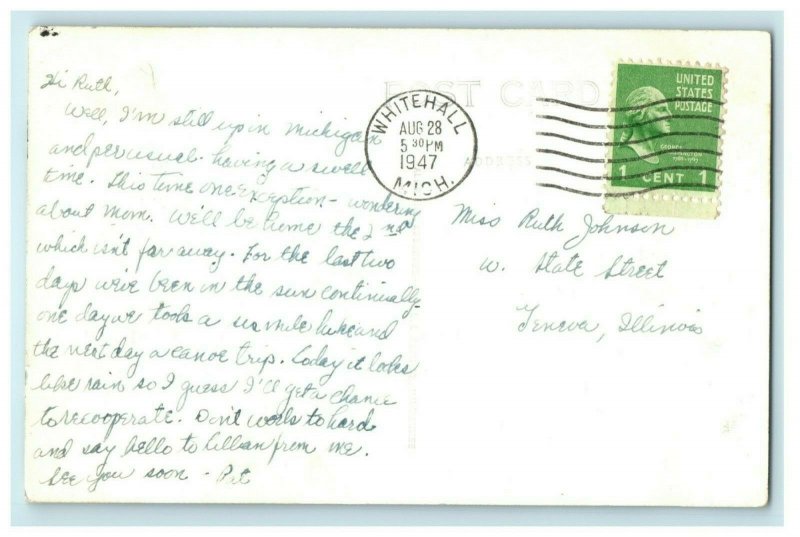 POST CARD
ADDRESS
WHITEHALL
AUG 28
5 30 PM
1947
MICH.
UNITED
STATES
POSTAGE
GEORGE
WASHINGTON
1 CENT 1
Hi Ruth,
Well, I'm still up in Michigan
and per usual having a swell
time. This time one exception - wondering
about mom. We'll be home the 2nd
which isn't far away. For the last two
days we've been in the sun continually -
one day we took a six mile hike and
the next day a canoe trip. Today it looks
like rain so I guess I'll get a chance
to recooperate. Don't work to hard
and say hello to Lillian from me.
See you soon - Pat
Miss Ruth Johnson
W. State Street
Geneva, Illinois